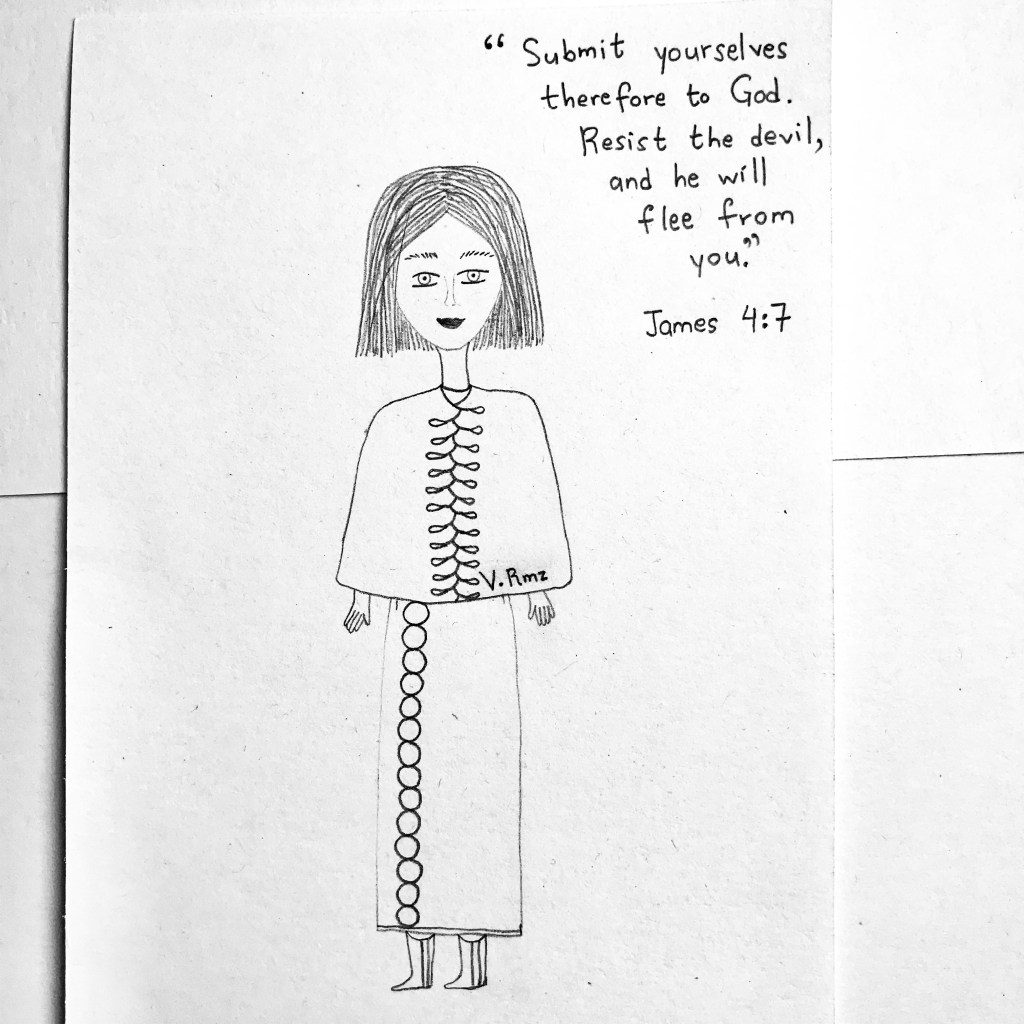 “Submit yourselves
therefore to God.
Resist the devil,
and he will
flee from
you.”
James 4:7
V. Rmz